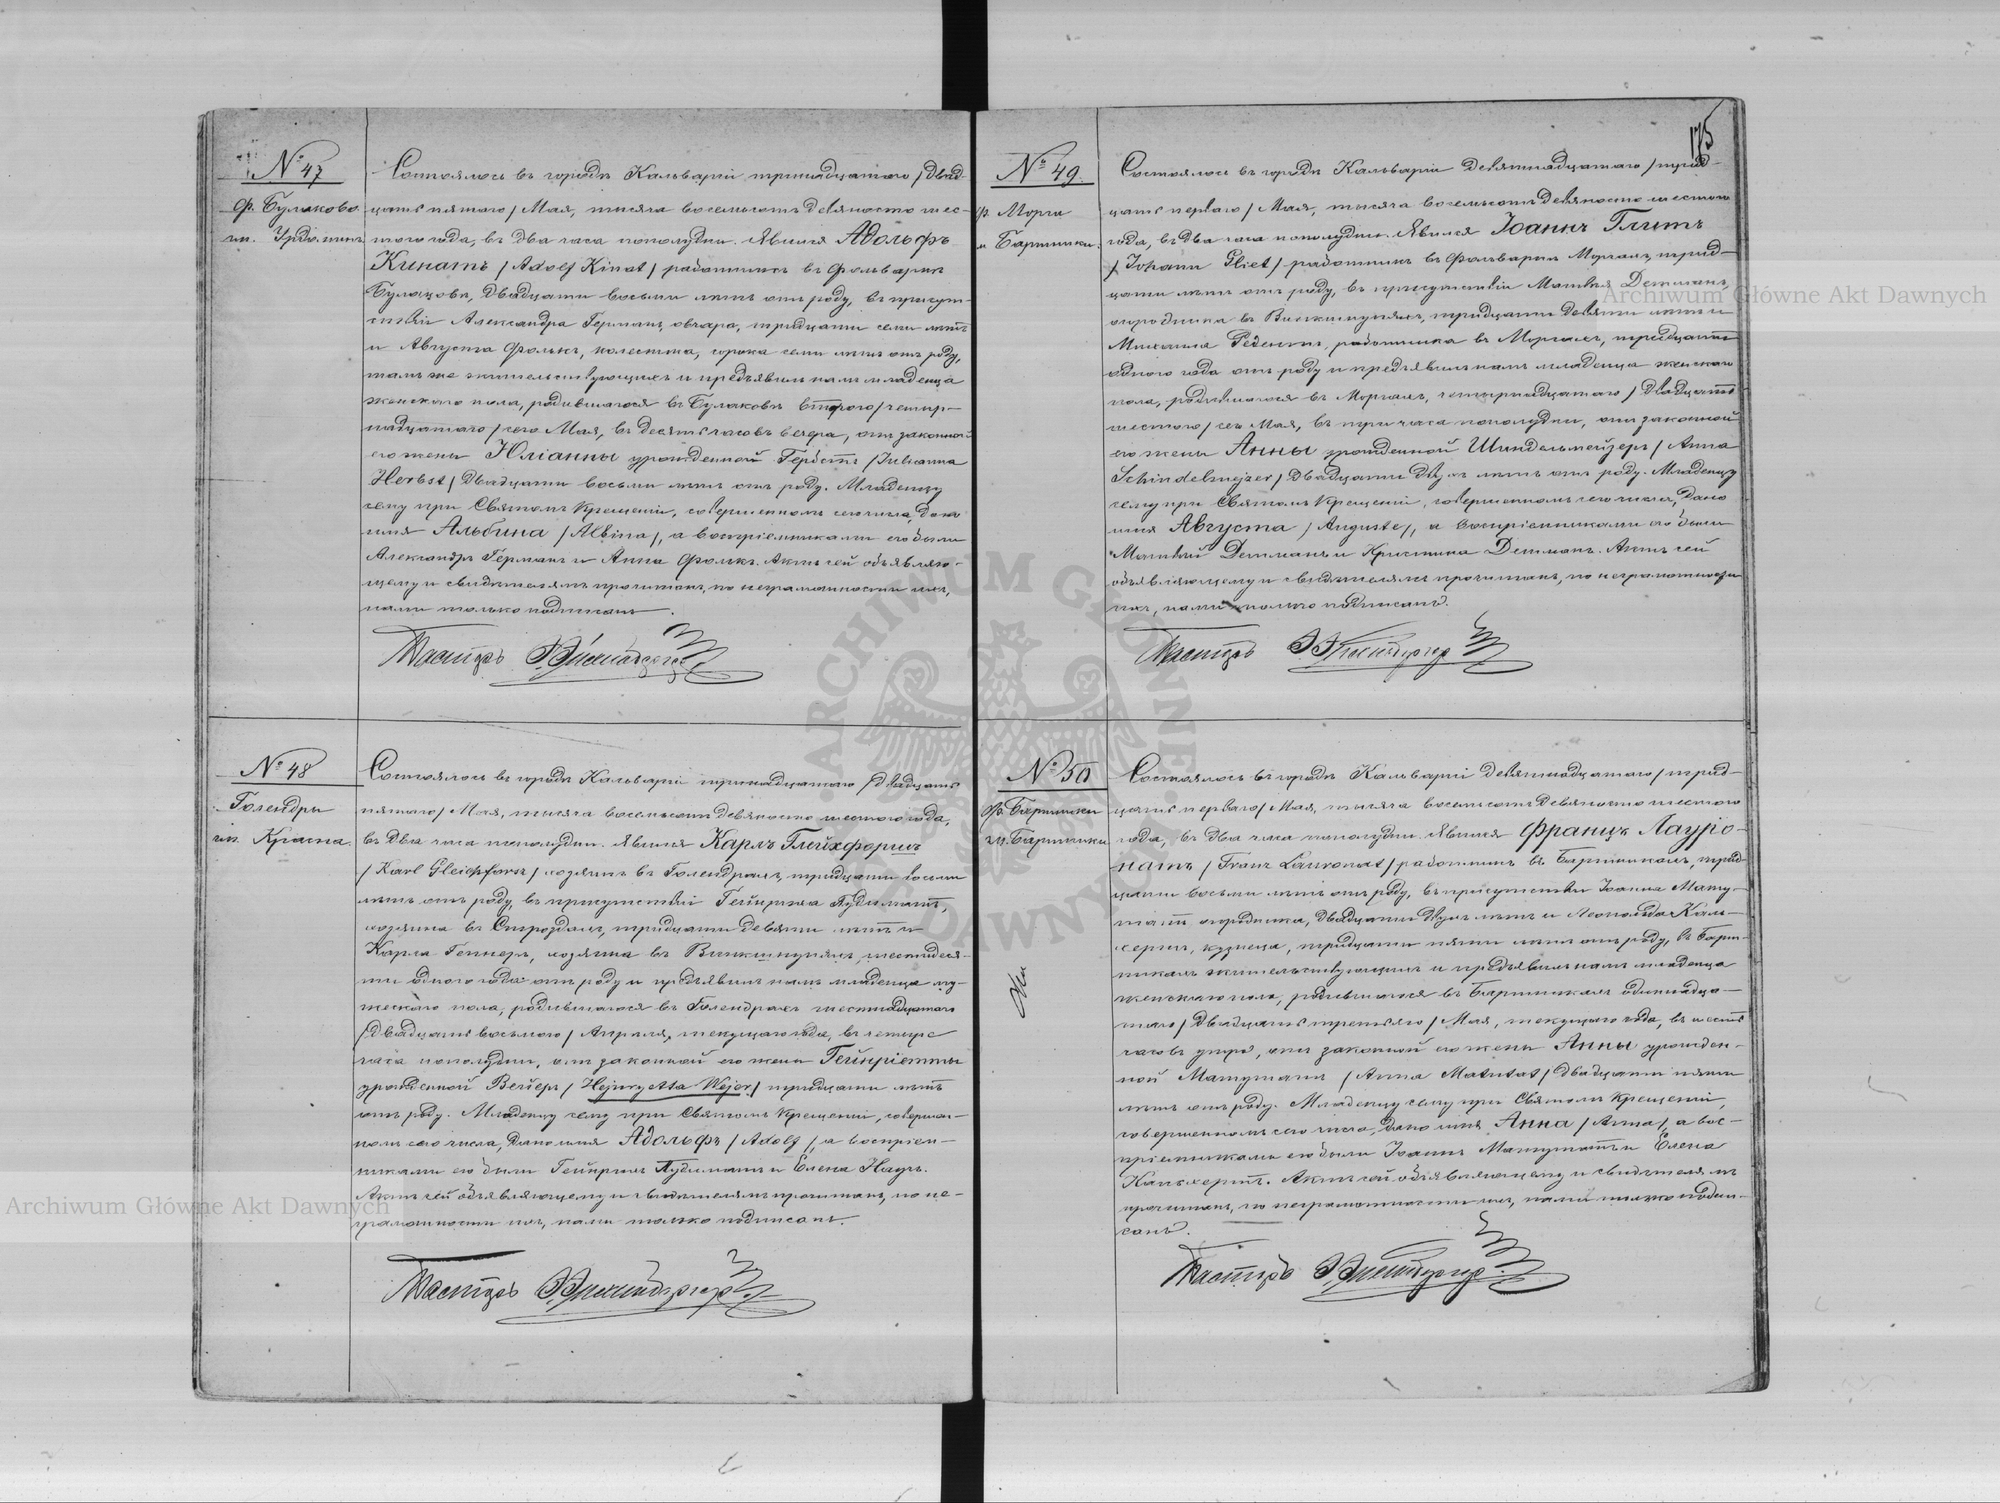 175
№ 47
Ф. Булаково
гм. Урдомин
Состоялось въ городѣ Кальваріи тринадцатаго /двад-
цать пятаго/ Мая, тысяча восемьсотъ девяносто шес-
таго года, въ два часа пополудни. Явился Адольфъ
Кинатъ /Adolf Kinat/ работникъ въ фольваркѣ
Булаковѣ, двадцати восьми лѣтъ отъ роду, въ присут-
ствіи Александра Германъ, овчара, тридцати семи лѣтъ
и Августа Фолькъ, колесника, сорока семи лѣтъ отъ роду,
тамъ же жительствующихъ и предъявилъ намъ младенца
женскаго пола, родившагося въ Булаковѣ втораго /четыр-
надцатаго/ сего Мая, въ десять часовъ вечера, отъ законной
его жены Юліанны урожденной Гербстъ /Julianna
Herbst/ двадцати восьми лѣтъ отъ роду. Младенцу
сему при Святомъ Крещеніи, совершенномъ сего числа, дано
имя Альбина /Albina/, а воспріемниками его были
Александръ Германъ и Анна Фолькъ. Актъ сей объявляю-
щему и свидѣтелямъ прочитанъ, по неграмотности ихъ,
нами только подписанъ.
Пасторъ
№ 48
Голендры
гм. Красна
Состоялось въ городѣ Кальваріи тринадцатаго /двадцать
пятаго/ Мая, тысяча восемьсотъ девяносто шестого года,
въ два часа пополудни. Явился Карлъ Глейхфоршъ
/Karl Gleichforsz/ хозяинъ въ Голендрахъ, тридцати восьми
лѣтъ отъ роду, въ присутствіи Гейнриха Аудиматъ,
хозяина въ тридцати девяти лѣтъ и
Карла Геннеръ, хозяина въ Винкшнупяхъ шестидеся-
ти одного года отъ роду и предъявилъ намъ младенца му-
жескаго пола, родившагося въ Голендрахъ шестнадцатаго
/двадцать восьмого/ Апрѣля, текущаго года, въ четыре
часа пополудни, отъ законной его жены Гейнріетты
урожденной Вейеръ /Hejnryetta Wejer/ тридцати лѣтъ
отъ роду. Младенцу сему при Святомъ Крещеніи, совершен-
номъ сего числа, дано имя Адольфъ /Adolf/, а воспріем-
никами его были Гейнрихъ Аудиматъ и Елена Наугъ.
Актъ сей объявляющему и свидѣтелямъ прочитанъ, по не-
грамотности ихъ, нами только подписанъ.
Пасторъ
№ 49
ф. Морги
гм Бартники.
Состоялось въ городѣ Кальваріи девятнадцатаго /трид-
цать перваго/ Мая, тысяча восемьсотъ девяносто шестого
года, въ два часа пополудни. Явился Іоаннъ Глитъ
/Johann Gliet/ работникъ въ фольваркѣ Моргахъ, трид-
цати лѣтъ отъ роду, въ присутствіи Матвѣя Детманъ,
огородника въ Винкшнупяхъ, тридцати девяти лѣтъ и
Михаила работника въ Моргахъ, тридцати
одного года отъ роду и предъявилъ намъ младенца женскаго
пола, родившагося въ Моргахъ, четырнадцатаго /двадцать
шестого/ сего Мая, въ три часа пополудни, отъ законной
его жены Анны урожденной Шиндельмейзеръ /Anna
Schindelmejzer/ двадцати двухъ лѣтъ отъ роду. Младенцу
сему при Святомъ Крещеніи, совершенномъ сего числа, дано
имя Августа /Auguste/, а воспріемниками его были
Матвѣй Детманъ и Христина Детманъ. Актъ сей
объявляющему и свидѣтелямъ прочитанъ, по неграмотности
ихъ, нами только подписанъ.
Пасторъ
№ 50
ф. Бартники
гм. Бартники
Состоялось въ городѣ Кальваріи девятнадцатаго /трид-
цать перваго/ Мая, тысяча восемьсотъ девяносто шестого
года, въ два часа пополудни. Явился Францъ Лауро-
натъ /Franz Lauronat/ работникъ въ Бартникахъ, трид-
цати восьми лѣтъ отъ роду, въ присутствіи Іоанна Мату-
татъ огородника, двадцати двухъ лѣтъ и Леопольда Каль-
хертъ, кузнеца, тридцати пяти лѣтъ отъ роду, въ Барт-
никахъ жительствующихъ и предъявилъ намъ младенца
женскаго пола, родившагося въ Бартникахъ одиннадца-
таго /двадцать третьяго/ Мая, текущаго года, въ шесть
часовъ утра, отъ законной его жены Анны урожден-
ной Матутатъ /Anna Matutat/ двадцати пяти
лѣтъ отъ роду. Младенцу сему при Святомъ Крещеніи,
совершенномъ сего числа, дано имя Анна /Anna/, а вос-
пріемниками его были Іоаннъ Матутатъ и Елена
Калькертъ. Актъ сей объявляющему и свидѣтелямъ
прочитанъ, по неграмотности ихъ, нами только подпи-
санъ.
Пасторъ
Archiwum Główne Akt Dawnych
Archiwum Główne Akt Dawnych
ARCHIWUM GŁÓWNE AKT DAWNYCH